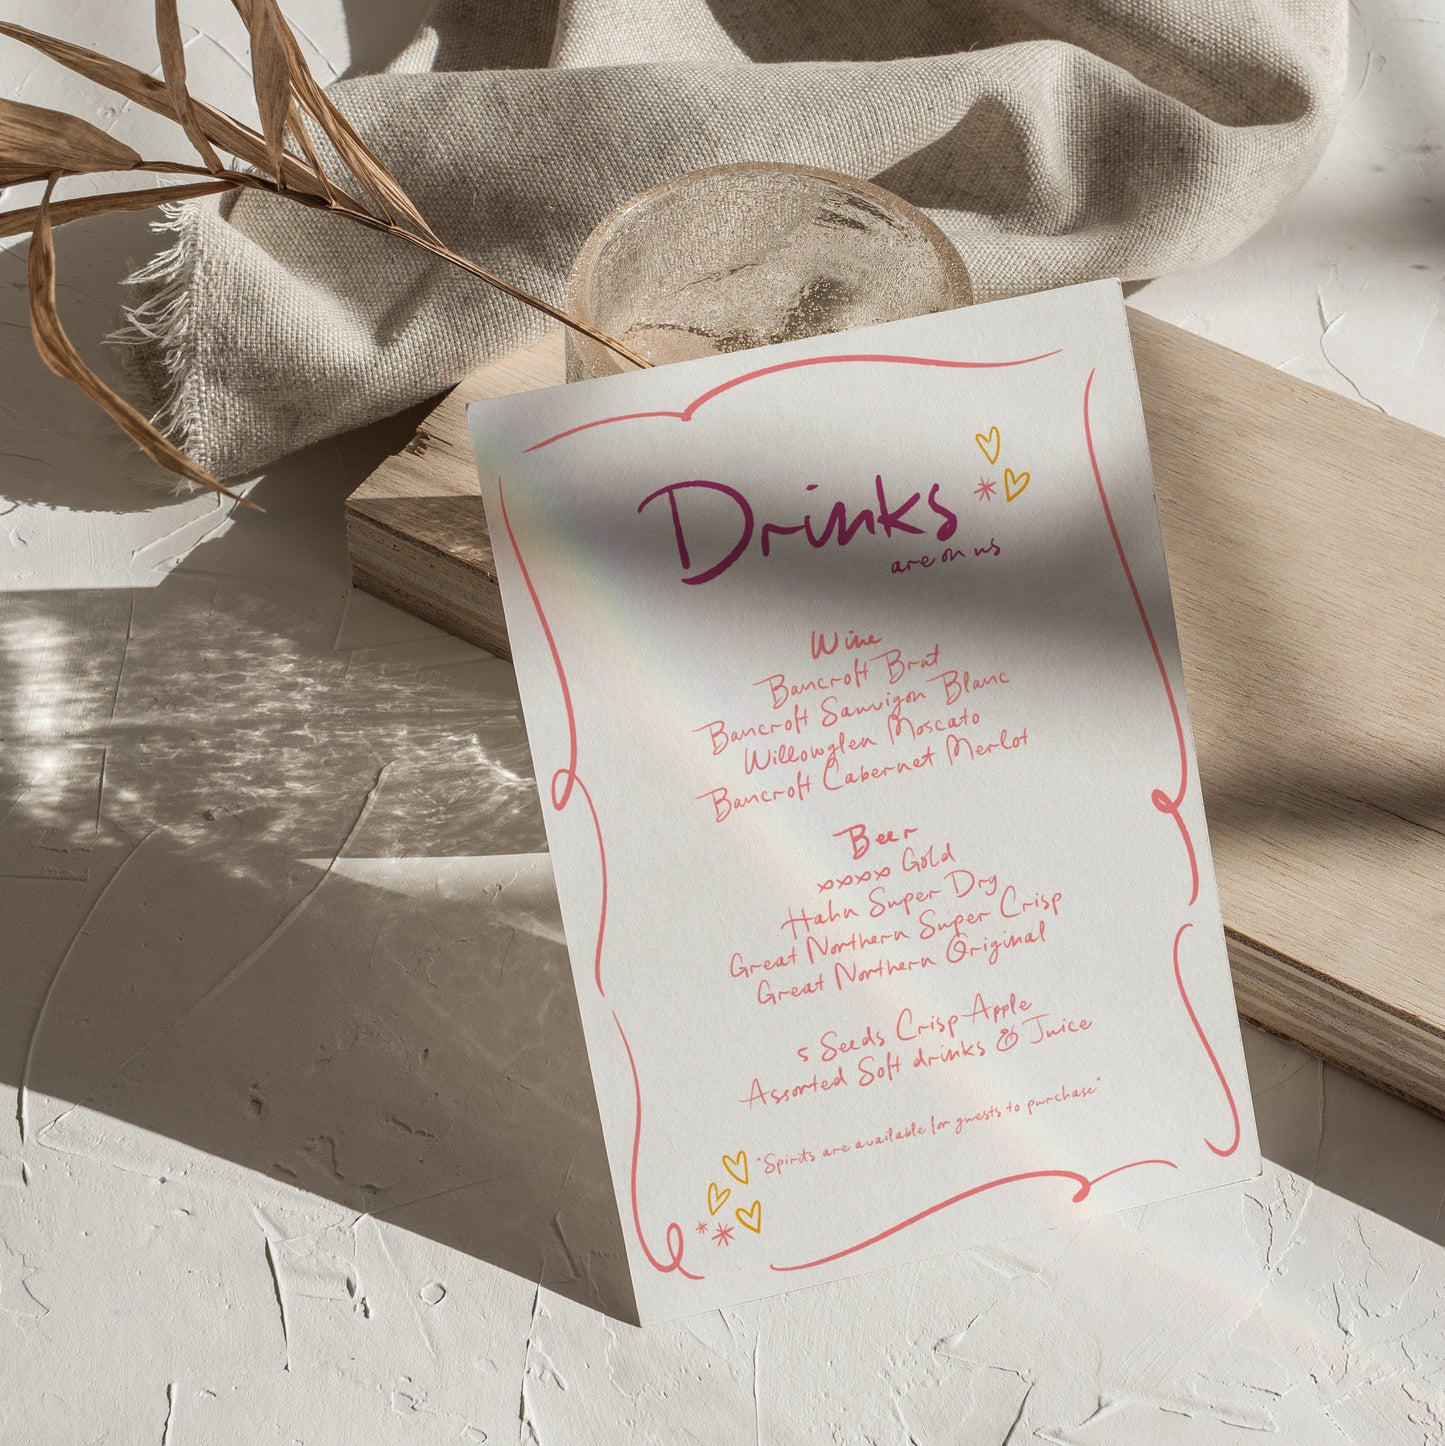 Drinks
are on us
Wine
Bancroft Brut
Bancroft Sauvigon Blanc
Willowglen Moscato
Bancroft Cabernet Merlot
Beer
xxxx Gold
Hahn Super Dry
Great Northern Super Crisp
Great Northern Original
5 Seeds Crisp Apple
Assorted Soft drinks & Juice
"Spirits are available for guests to purchase"